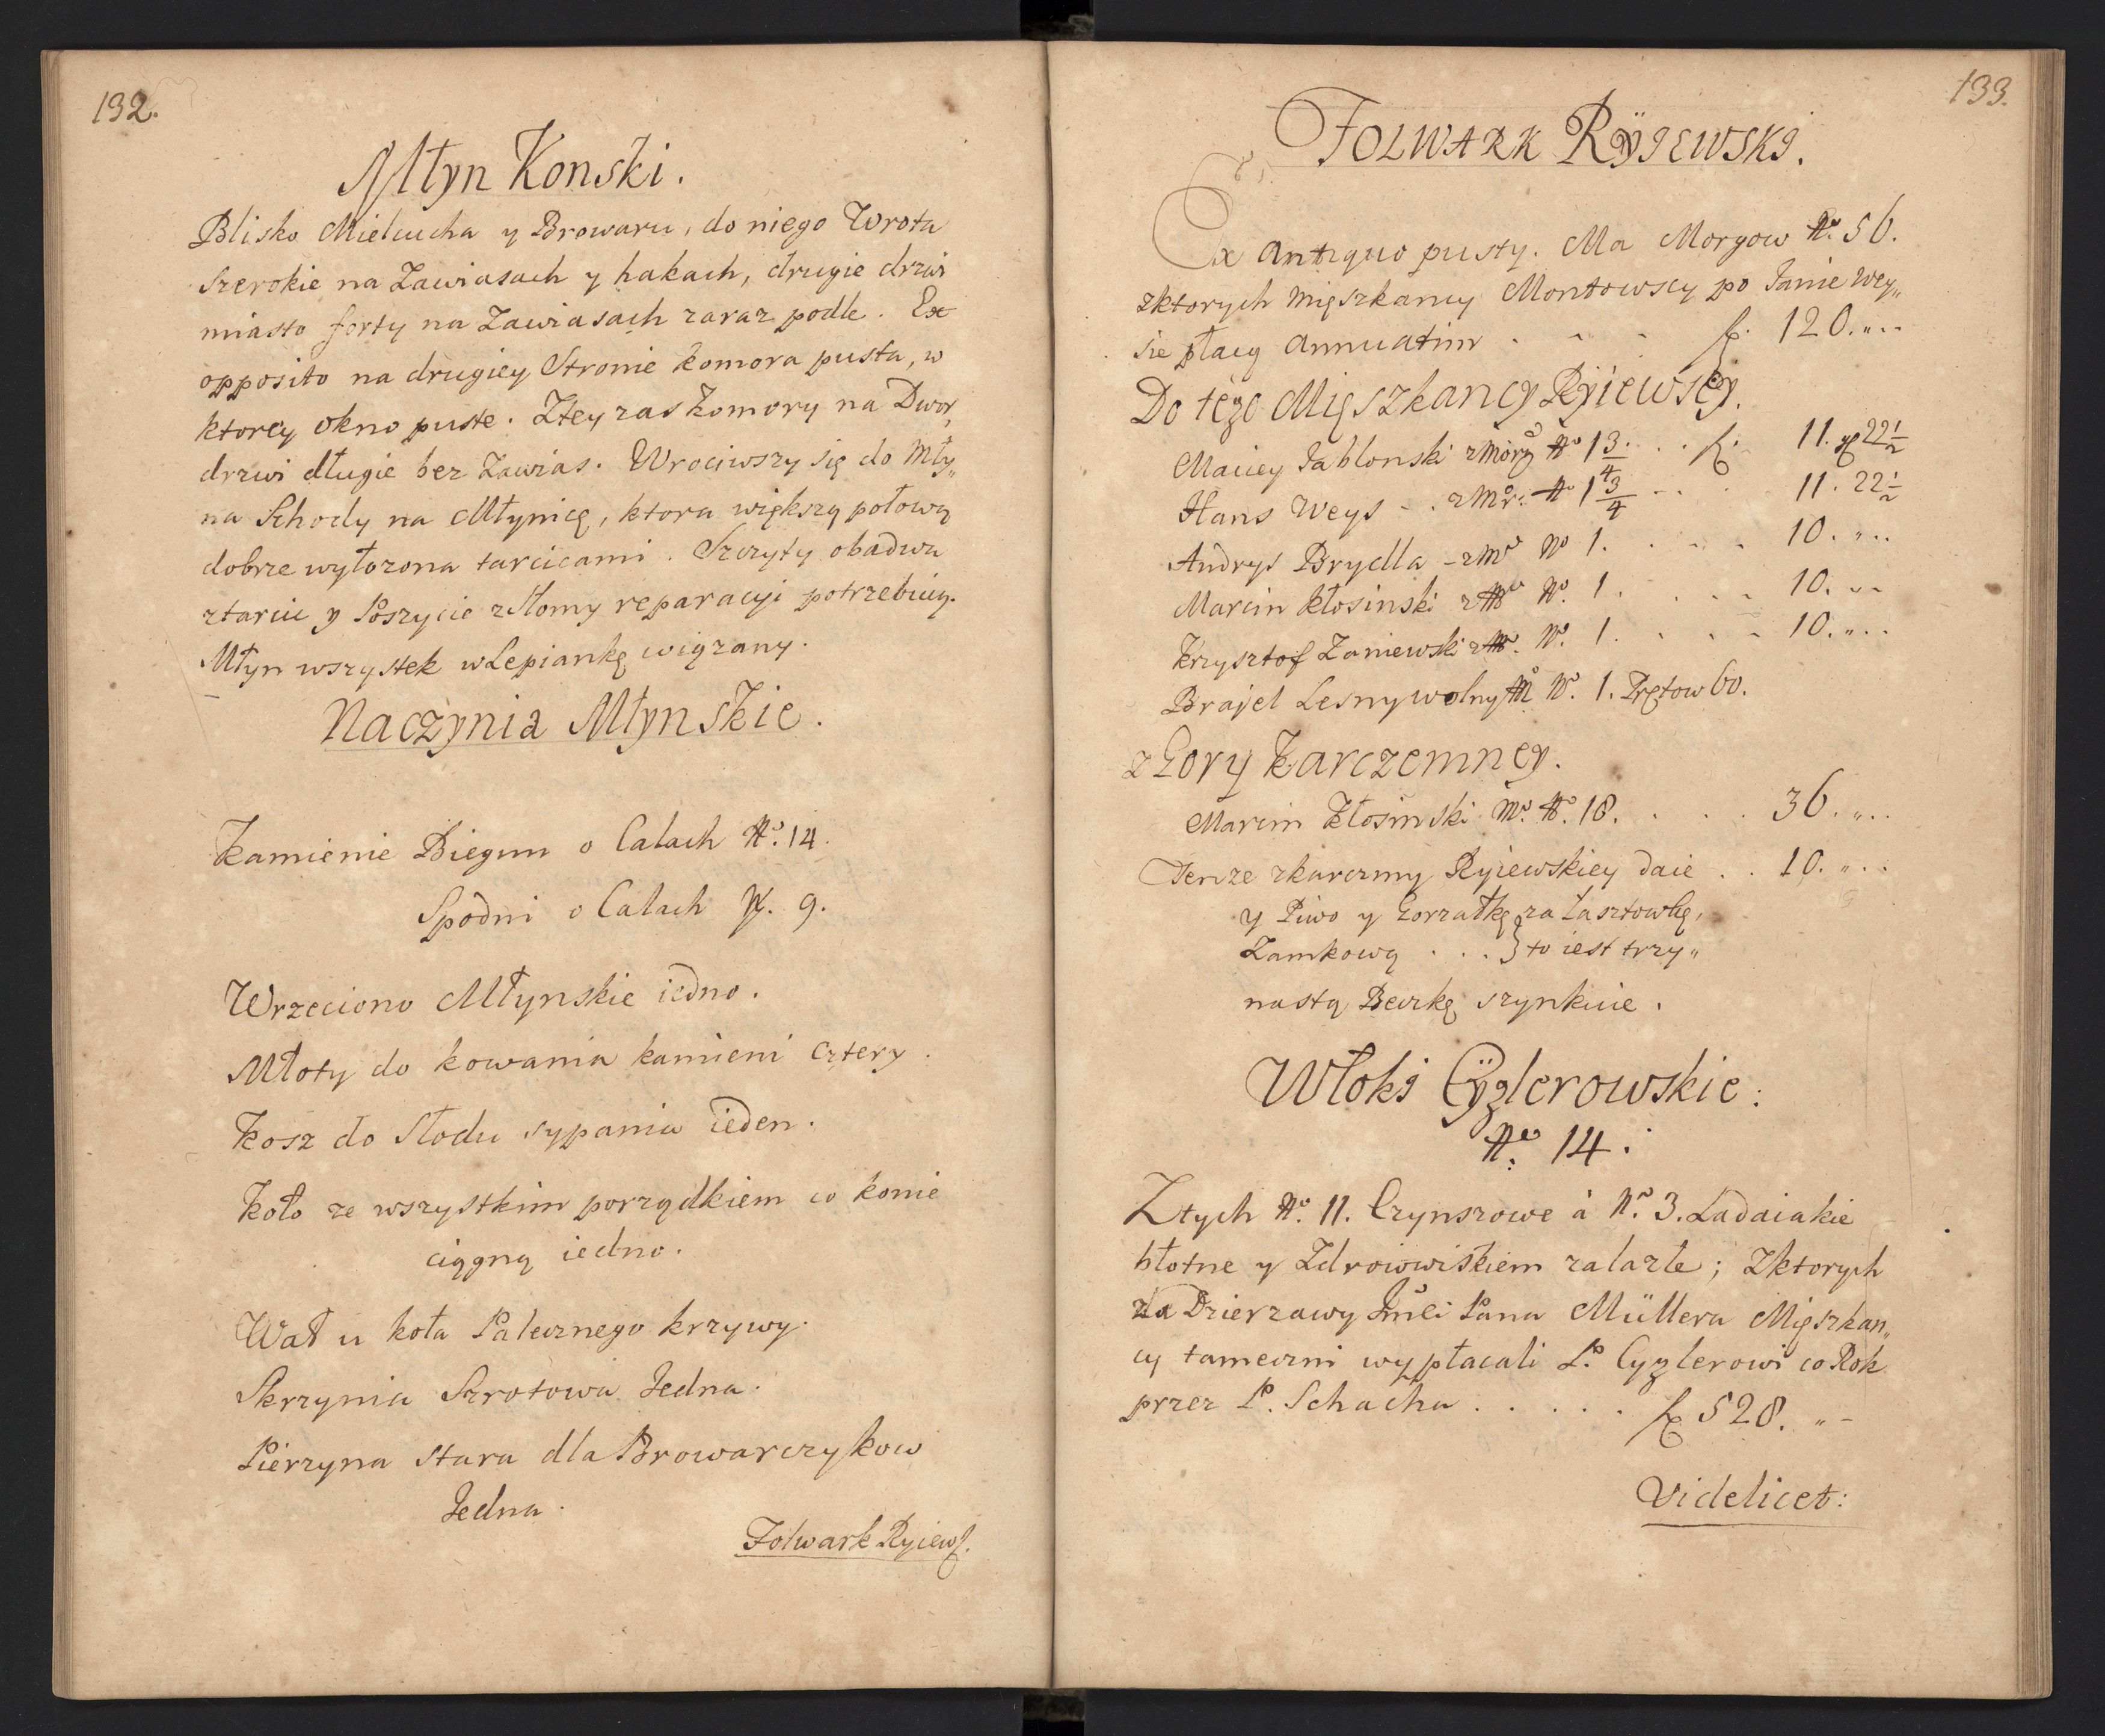 132.
Młyn Konski.
Blisko Mielcucha y Browaru, do niego Wrota
Szerokie na Zawiasach y hakach, drugie drzwi
miasto forty na Zawiasach zaraz podle. Ex
opposito na drugiey Stronie komora pusta, w
ktorey okno puste. Ztey zas komory na Dwor,
drzwi długie bez Zawias. Wrociwszy się do Mły„
na Schody na Młynicę, ktora większą połową
dobrze wyłozona tarcicami. Szczyty obadwa
ztarcic y Poszycie zSłomy reparacyi potrzebuią.
Młyn wszystek wLepiankę wiązany.
Naczynia Młynskie.
Kamienie Biegun o Calach No. 14.
Spodni o Calach N. 9.
Wrzeciono Młynskie iedno.
Młoty do kowania kamieni cztery.
Kosz do Słodu sypania ieden.
Koło ze wszystkim porządkiem co konie
ciągną iedno.
Wał u koła Palecznego krzywy.
Skrzynia Szrotowa Jedna.
Pierzyna stara dla Browarczykow
Jedna.
Folwark Ryiews.
133.
FOLWARK RŸIEWSKI.
Ex Antiquo pusty. Ma Morgow No. 56.
zktorych Mięszkancy Montowscy po Janie Wey„
sie płacą annuatim . - - - f. 120. „..
Do tego Mięszkancy Rÿiewscy.
Maciey Jablonski zMorg No 1 3/4 . . . f. 11. g 22 1/2
Hans Weys - . zMr. No 1 3/4 - . . 11. 22 1/2
Andrys Brydla - zMo No 1. . - - 10. „..
Marcin Kłosinski zMo No. 1. . . - - 10. --
Krzysztof Zaniewski zMo. No. 1. . . - 10. „..
Brajel Lesny wolny Mo No. 1. Prętow 60.
z Gory Karczemney.
Marcin Kłosinski Mo. No. 18. . . . 36. „..
Tenze zkarczmy Ryiewskiey daie . . 10. „..
y Piwo y Gorzałkę za Łasztowkę,
Zamkową . . . } to iest trzy„
nastą Beczkę szynkuie.
Włoki Cÿglerowskie:
No. 14.
Ztych No. 11. Czynszowe à No. 3. Ladaiakie
błotne y Zdroiowiskiem zalazłe; Zktorych
za Dzierzawy Jmći Pana Müllera Mięszkan„
cy tameczni wypłacali P. Cyglerowi co Rok
przez P. Schacha . . . . . f 528. „-
Videlicet: